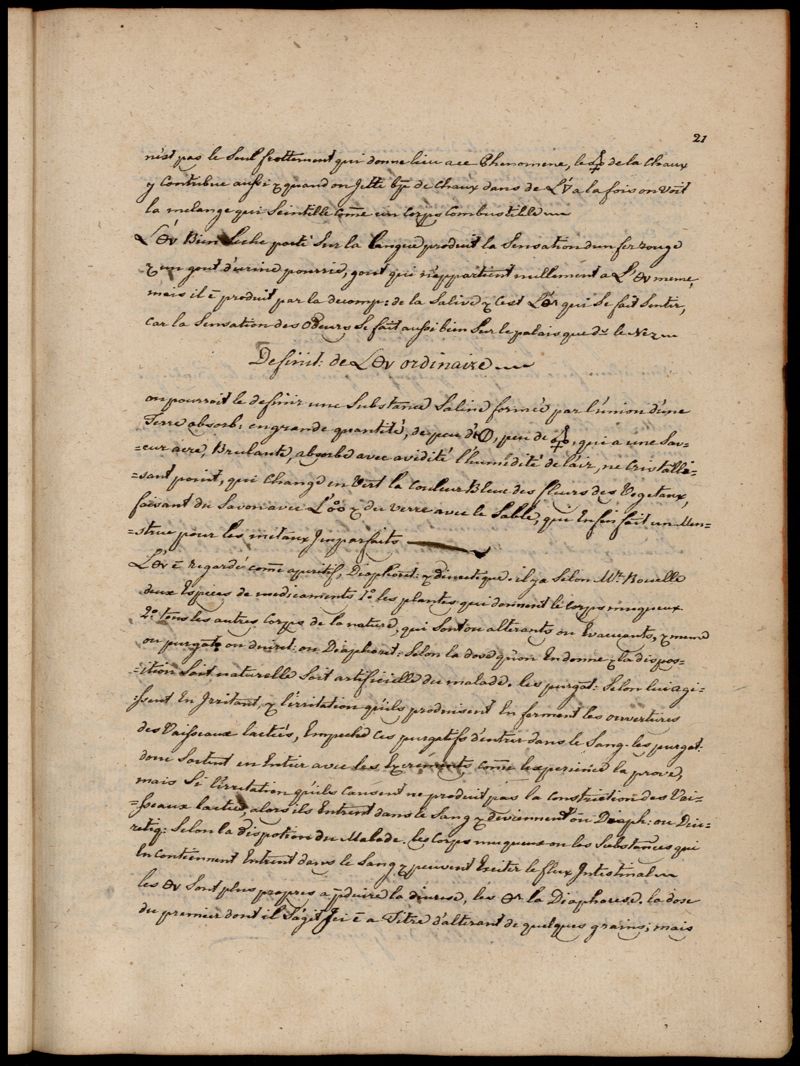 21
n'est pas le Seul frottement qui donne lieu a ce Phenomene, le 🜍 de la Chaux
y Contribue aussi & quand on Jette bp de Chaux dans de L'🜄 a la fois on voit
la melange qui Scintille come un Corps Combustible
L'⊖v Bien Seche porté Sur la langue produit la Sensation d'un fer rouge
& un gout d'urine pourrie, gout qui n'appartient nullement a L'⊖v meme,
mais il ē produit par la decomp: de la Salive & C'est L' qui Se fait Sentir,
Car la Sensation des Odeurs Se fait aussi bien Sur le palais que ds le Nez
Definit: de L'⊖v ordinaire
on pourroit le definir une Substance Saline formée par l'union d'une
Terre absorb: en grande quantité, de peu d', peu de 🜍, qui a une Sav-
=eur acre, Brulante, absorbe avec avidité l'humidité de l'air, ne Cristalli-
=sant point, qui Change en Vert la Couleur Bleue des fleurs des Vegetaux,
faisant du Savon avec L'°° & du Verre avec le Sable, qui Enfin fait un Men-
=strue pour les métaux Imparfaits
L'⊖v ē regardé come aperitif, Diaphoret: & diuretique: il y a Selon Mr. Rouelle
deux Especes de medicaments 1° les plantes qui donnent le Corps muqueux
2° tous les autres Corps de la nature, qui Sont ou alterants ou Evacuants, & meme
ou purgats ou diuret: ou Diaphoret: Selon la dose qu'on En donne & la dispos-
=ition Soit naturelle Soit artificielle du malade. les purgat: Selon lui agi-
=ssent En Irritant, & l'irritation qu'ils produisent En fermant les ouvertures
des Vaisseaux lactés, Empeche Ces purgatifs d'entrer dans le Sang. les purgat:
donc Sortent en Entier avec les Excrements come l'experience la prove,
mais Si l'irritation qu'ils Causent ne produit pas la Constriction des Vai-
=sseaux lactés, alors ils Entrent dans le Sang & deviennent ou Diaph: ou Diu-
retiq: Selon la dispotion du Malade. les Corps muqueux ou les Substances qui
En Contiennent Entrent dans le Sang & peuvent Exciter le flux Intestinal
les ⊖v Sont plus propres a pduire la diurese, les la Diaphorese. la dose
du premier dont il S'agit Ici ē a Titre d'alterant de quelques grains; mais